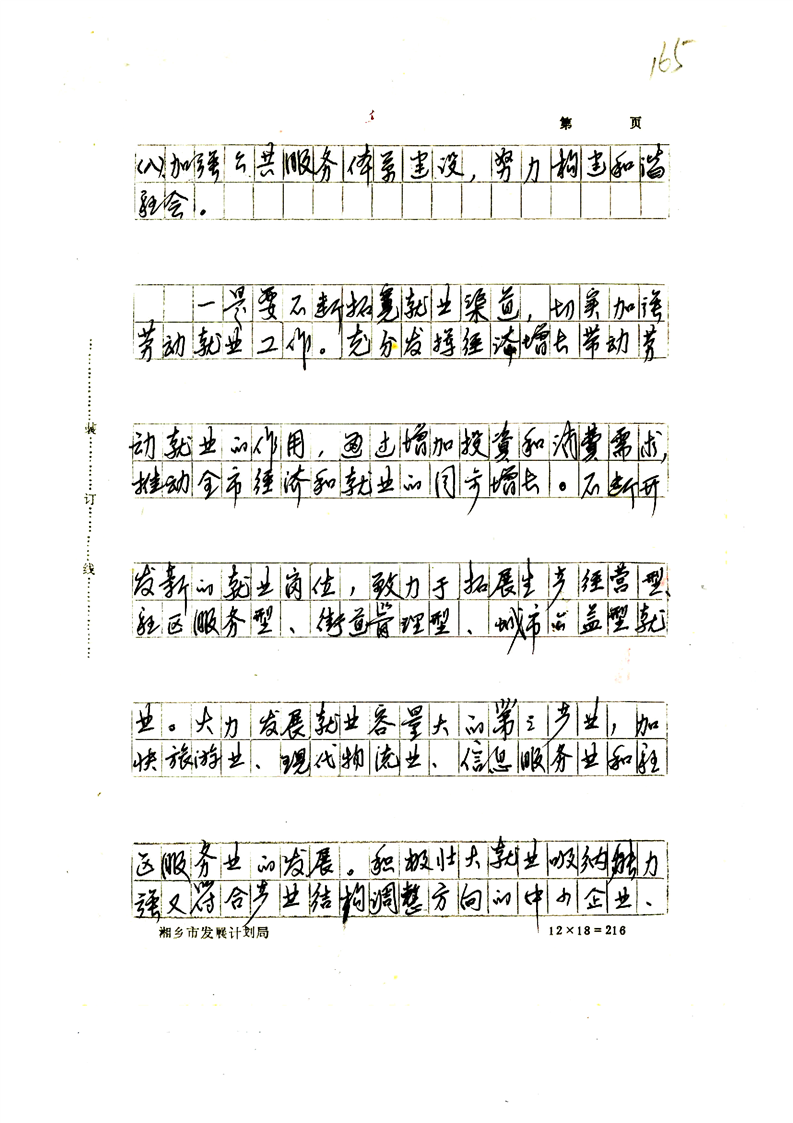 165
第 页
(八)加强公共服务体系建设,努力构建和谐
社会。
一是要不断拓宽就业渠道,切实加强
劳动就业工作。充分发挥经济增长带动劳
动就业的作用,通过增加投资和消费需求,
推动全市经济和就业的同步增长。不断开
发新的就业岗位,致力于拓展生产经营型、
社区服务型、街道管理型、城市公益型就
业。大力发展就业容量大的第三产业,加
快旅游业、现代物流业、信息服务业和社
区服务业的发展。积极壮大就业吸纳能力
强又符合产业结构调整方向的中小企业、
装
订
线
湘乡市发展计划局 12×18=216